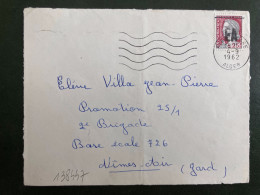 EA
4-9
1962
ALGER
Elève Villa Jean-Pierre
Promotion 25/1
2e Brigade
Base école 726
Nîmes-Air (Gard)